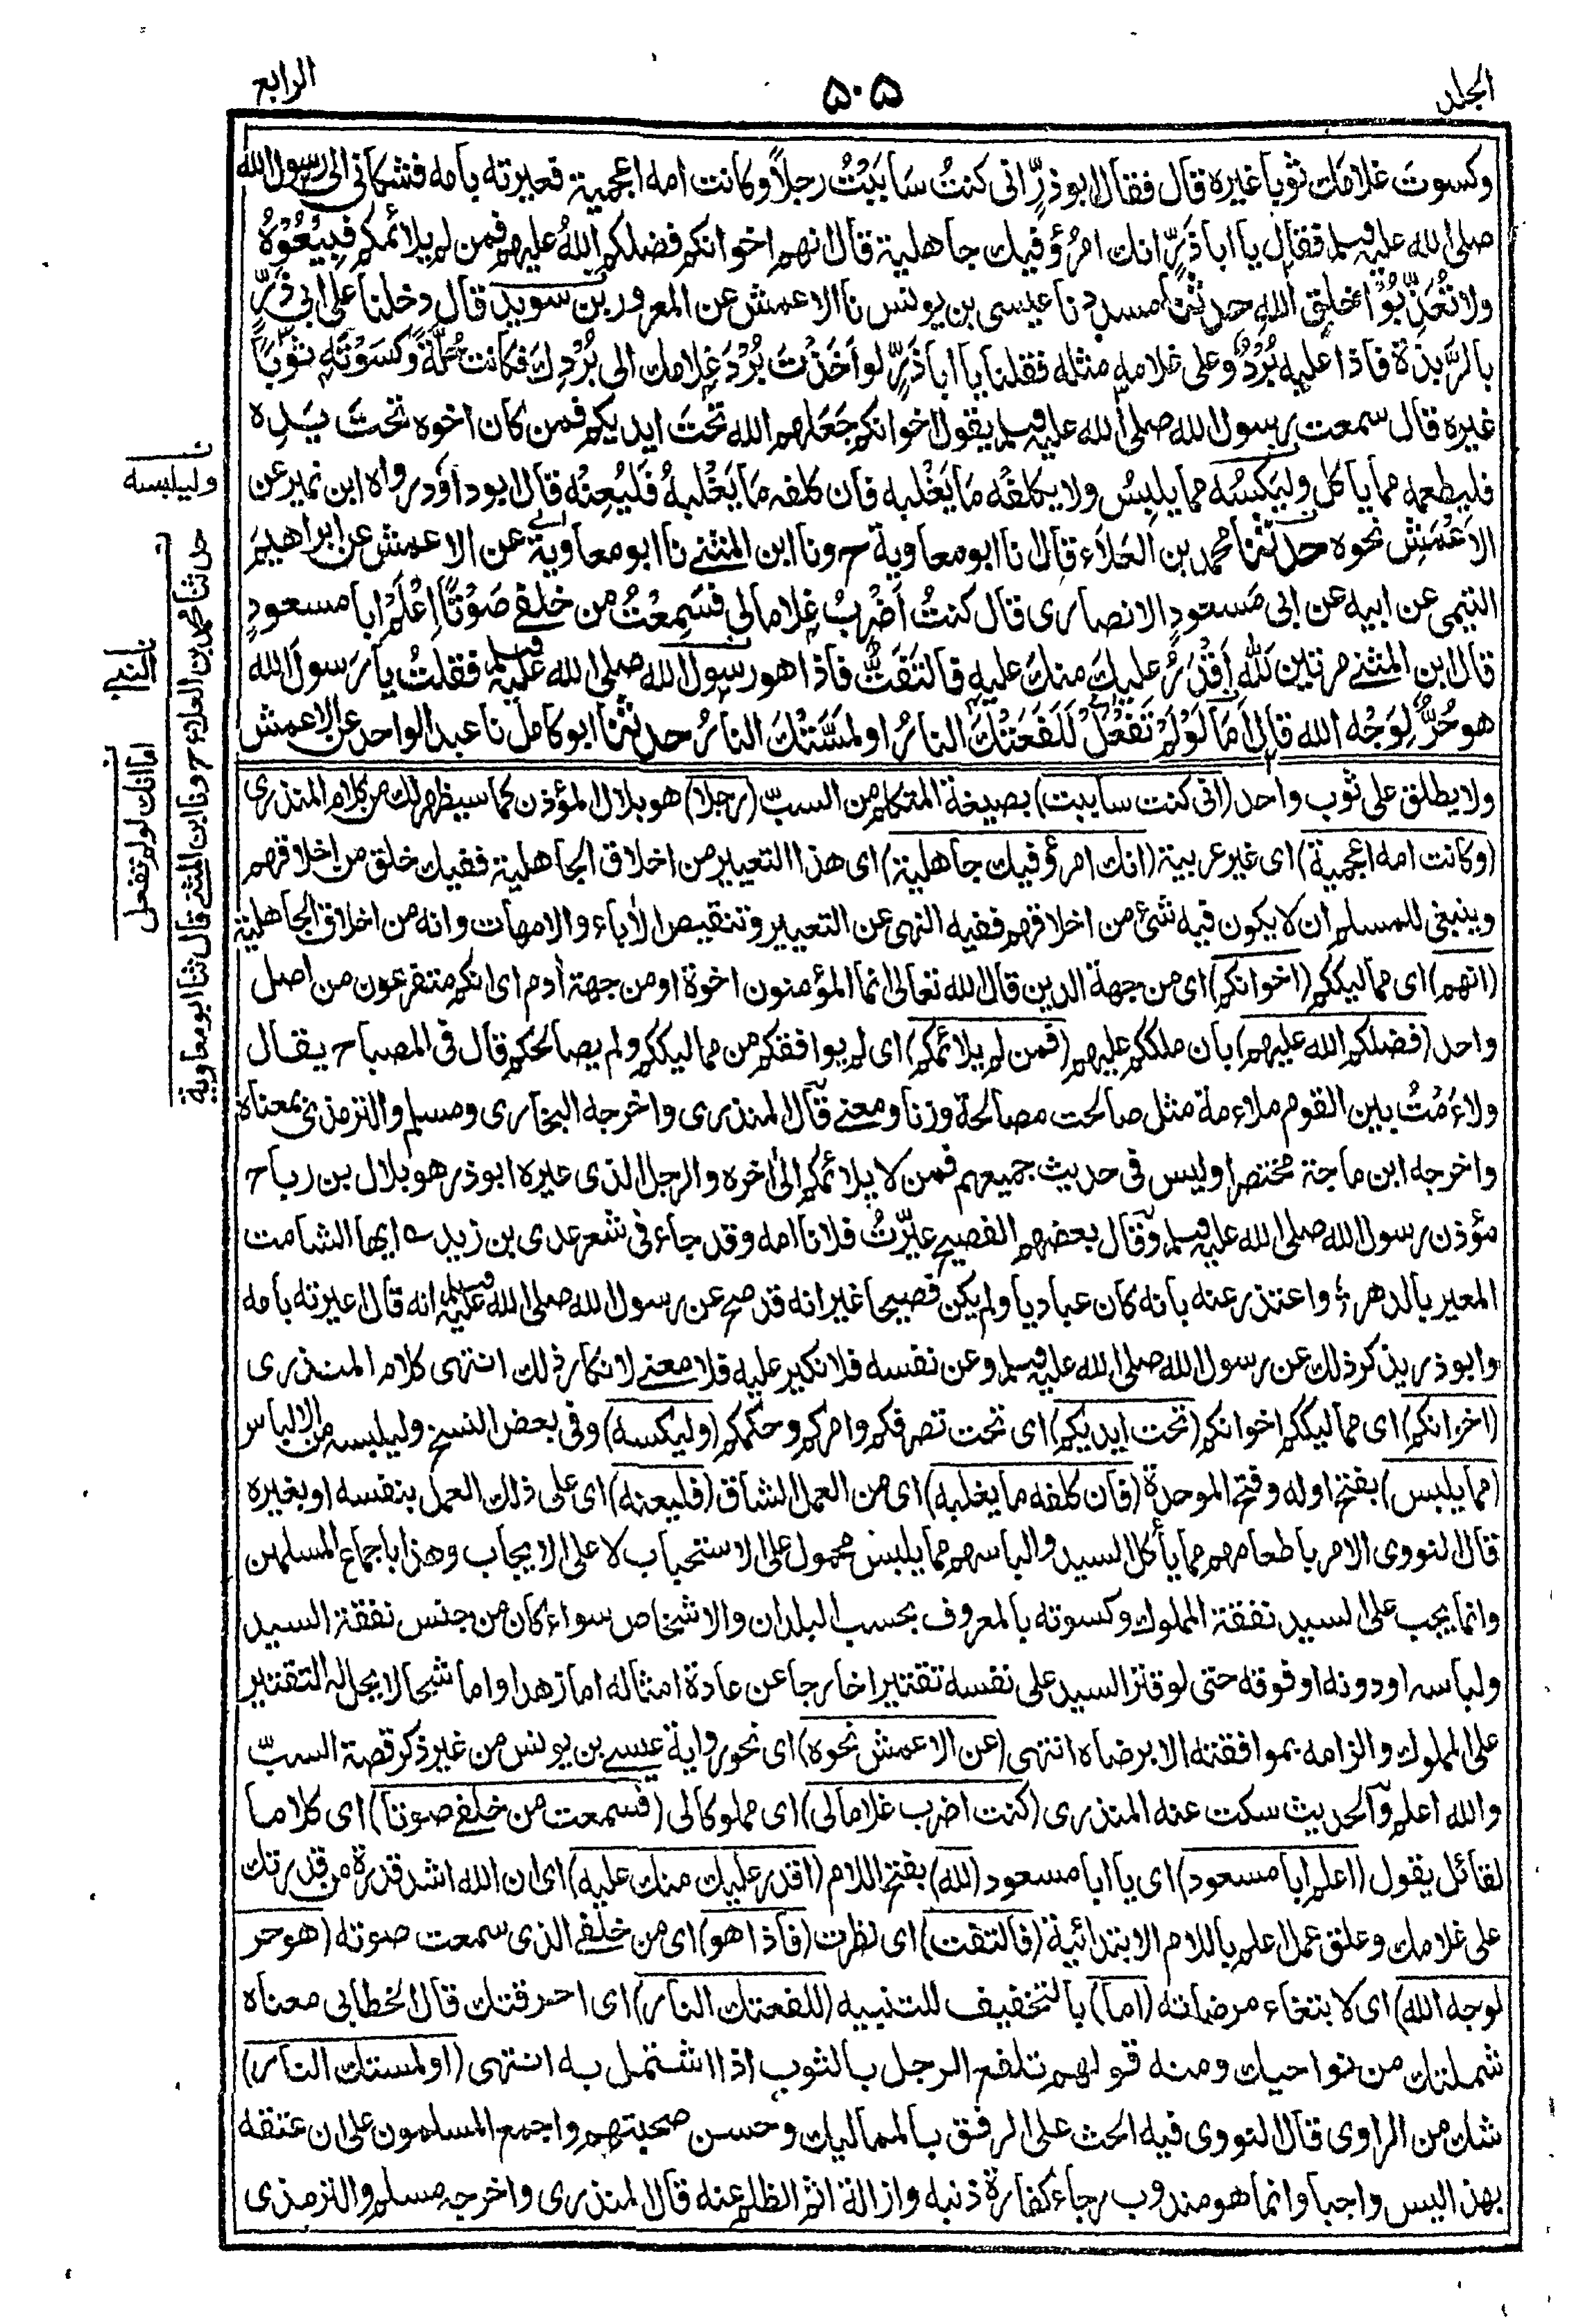 المجلد
۵۰۵
الرابع
وكسوتَ غلامك ثوبا غيره قال فقال ابوذرٍّ انى كنتُ سَابَبْتُ رجلاً وكانت امه اعجمية فعيرته بامه فشكانى الى رسول الله
صلى الله عليه وسلم فقال يا اباذَرٍّ انك امرُؤ فيك جاهلية قال انهم اخوانكم فضلكم اللهُ عليهم فمن لم يلائمكم فَبِيْعُوْهُ
ولا تُعَذِّبُوْا خلق اللهِ حدثنا مسدد نا عيسى بن يونس نا الاعمش عن المعرور بن سويد قال دخلنا على ابى ذَرٍّ
بالرَّبذة فاذا عليه بُرْدٌ وعلى غلامه مثله فقلنا يا اباذَرٍّ لو اَخَذْتَ بُرْدَ غلامك الى بُرْدِك فكانت حُلَّةً وكَسَوْتَه ثوبًا
غيره قال سمعت رسول الله صلى الله عليه وسلم يقول اخوانكم جَعَلهم الله تحْتَ ايديكم فمن كان اخوه تحْتَ يَدِه
فليطعمه مما ياكل وليَكسُه مما يلبسُ ولا يكلفْه مَا يَغْلبه فان كلفه مَا يَغْلبهُ فَليُعِنْه قال ابوداؤد رواه ابن نمير عن
الاَعْمَشِ نحوه حدثنا محمد بن العَلاَء قال نا ابومعاوية ح ونا ابن المثنى نا ابومعاوية عن الاعمش عن ابراهيمَ
التيمى عن ابيه عن ابى مَسعودِ الانصارى قال كنتُ اَضْرِبُ غلامالى فَسَمِعْتُ من خلفى صَوْتًا اِعْلَمْ ابا مسعودٍ
قال ابن المثنى مرتين لَلّٰه اَقْدَرُ عليكَ منكَ عليه فالتفَتُّ فاذا هو رسول الله صلى الله عليه وسلم فقلتُ يا رَسولَ الله
هو حُرٌّ لِوَجْه الله قال اَمَا لَوْ لَمْ تَفْعَلْ لَلَفَعَتْكَ النارُ اولمسَّتْكَ النارُ حدثنا ابوكامل نا عبد الواحد عن الاعمش
ولا يطلق على ثوب واحد (انى كنت ساببت) بصيغة المتكلم من السبّ (رجلا) هو بلال المؤذن كما سيظهر لك من كلام المنذرى
(وكانت امه اعجمية) اى غير عربية (انك امرؤ فيك جاهلية) اى هذا التعيير من اخلاق الجاهلية ففيك خلق من اخلاقهم
وينبغى للمسلم ان لا يكون فيه شئ من اخلاقهم ففيه النهى عن التعيير وتنقيص الأباء والامهات وانه من اخلاق الجاهلية
(انهم) اى مماليككم (اخوانكم) اى من جهة الدين قال الله تعالى انما المؤمنون اخوة او من جهة أدم اى انكم متفرعون من اصل
واحد (فضلكم الله عليهم) بان ملككم عليهم (فمن لم يلائمكم) اى لم يوافقكم من مماليككم ولم يصالحكم قال فى المصباح يقال
ولاءَمْتُ بين القوم ملاءمة مثل صالحت مصالحة وزنا ومعنى قال المنذرى واخرجه البخارى ومسلم والترمذى بمعناه
واخرجه ابن ماجة مختصرا وليس فى حديث جميعهم فمن لا يلائمكم الى أخره والرجل الذى عيره ابوذر هو بلال بن رباح
مؤذن رسول الله صلى الله عليه وسلم وقال بعضهم الفصيح عيّرتُ فلانا امه وقد جاء فى شعر عدى بن زيد ؎ ايها الشامت
المعير بالدهر؛ واعتذر عنه بانه كان عباديا ولم يكن فصيحا غير انه قد صح عن رسول الله صلى الله عليه وسلم انه قال اعيرته بامه
وابوذر يذكر ذلك عن رسول الله صلى الله عليه وسلم وعن نفسه فلا نكير عليه فلا معنى لانكار ذلك انتهى كلام المنذرى
(اخوانكم) اى مماليككم اخوانكم (تحت ايديكم) اى تحت تصرفكم وامركم وحكمكم (وليكسه) وفى بعض النسخ وليلبسه من الالباس
(مما يلبس) بفتح اوله وفتح الموحدة (فان كلفه ما يغلبه) اى من العمل الشاق (فليعنه) اى على ذلك العمل بنفسه او بغيره
قال النووى الامر باطعامهم مما يأكل السيد والباسهم مما يلبس محمول على الاستحباب لا على الايجاب وهذا باجماع المسلمين
وانما يجب على السيد نفقة المملوك وكسوته بالمعروف بحسب البلدان والاشخاص سواء كان من جنس نفقة السيد
ولباسه او دونه او فوقه حتى لو قتر السيد على نفسه تقتيرا خارجا عن عادة امثاله اما زهدا واما شحا لا يحل له التقتير
على المملوك والزامه بموافقته الا برضاه انتهى (عن الاعمش نحوه) اى نحو رواية عيسى بن يونس من غير ذكر قصة السبّ
والله اعلم والحديث سكت عنه المنذرى (كنت اضرب غلامالى) اى مملوكالى (فسمعت من خلفى صوتا) اى كلاما
لقائل يقول (اعلم ابا مسعود) اى يا ابا مسعود (لله) بفتح اللام (اقدر عليك منك عليه) اى ان الله اشد قدرة من قدرتك
على غلامك وعلق عمل اعلم باللام الابتدائية (فالتفت) اى نظرت (فاذا هو) اى من خلفى الذى سمعت صوته (هو حر
لوجه الله) اى لابتغاء مرضاته (اما) بالتخفيف للتنبيه (للفعتك النار) اى احرقتك قال الخطابى معناه
شملتك من نواحيك ومنه قولهم تلفع الرجل بالثوب اذا اشتمل به انتهى (اولمستك النار)
شك من الراوى قال النووى فيه الحث على الرفق بالمماليك وحسن صحبتهم واجمع المسلمون على ان عتقه
بهذا ليس واجبا وانما هو مندوب رجاء كفارة ذنبه وازالة اثم الظلم عنه قال المنذرى واخرجه مسلم والترمذى
ن
وليلبسه
ن
حدثنا محمد بن العلاء ح ونا ابن المثنى قال ثنا ابومعاوية
ن
النبى
ن
اما انك لو لم تفعل